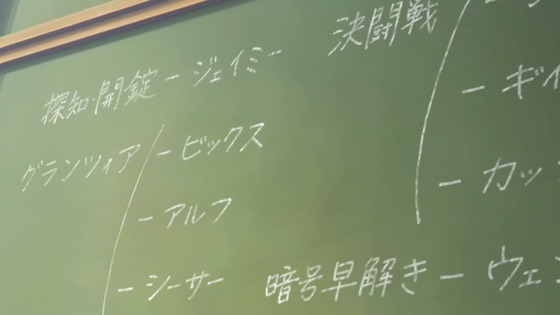 探知・開錠 － ジェイミー
グランツィア － ビックス
－ アルフ
－ シーサー
決闘戦
－ ギイ
－ カッ
暗号早解き － ウェ